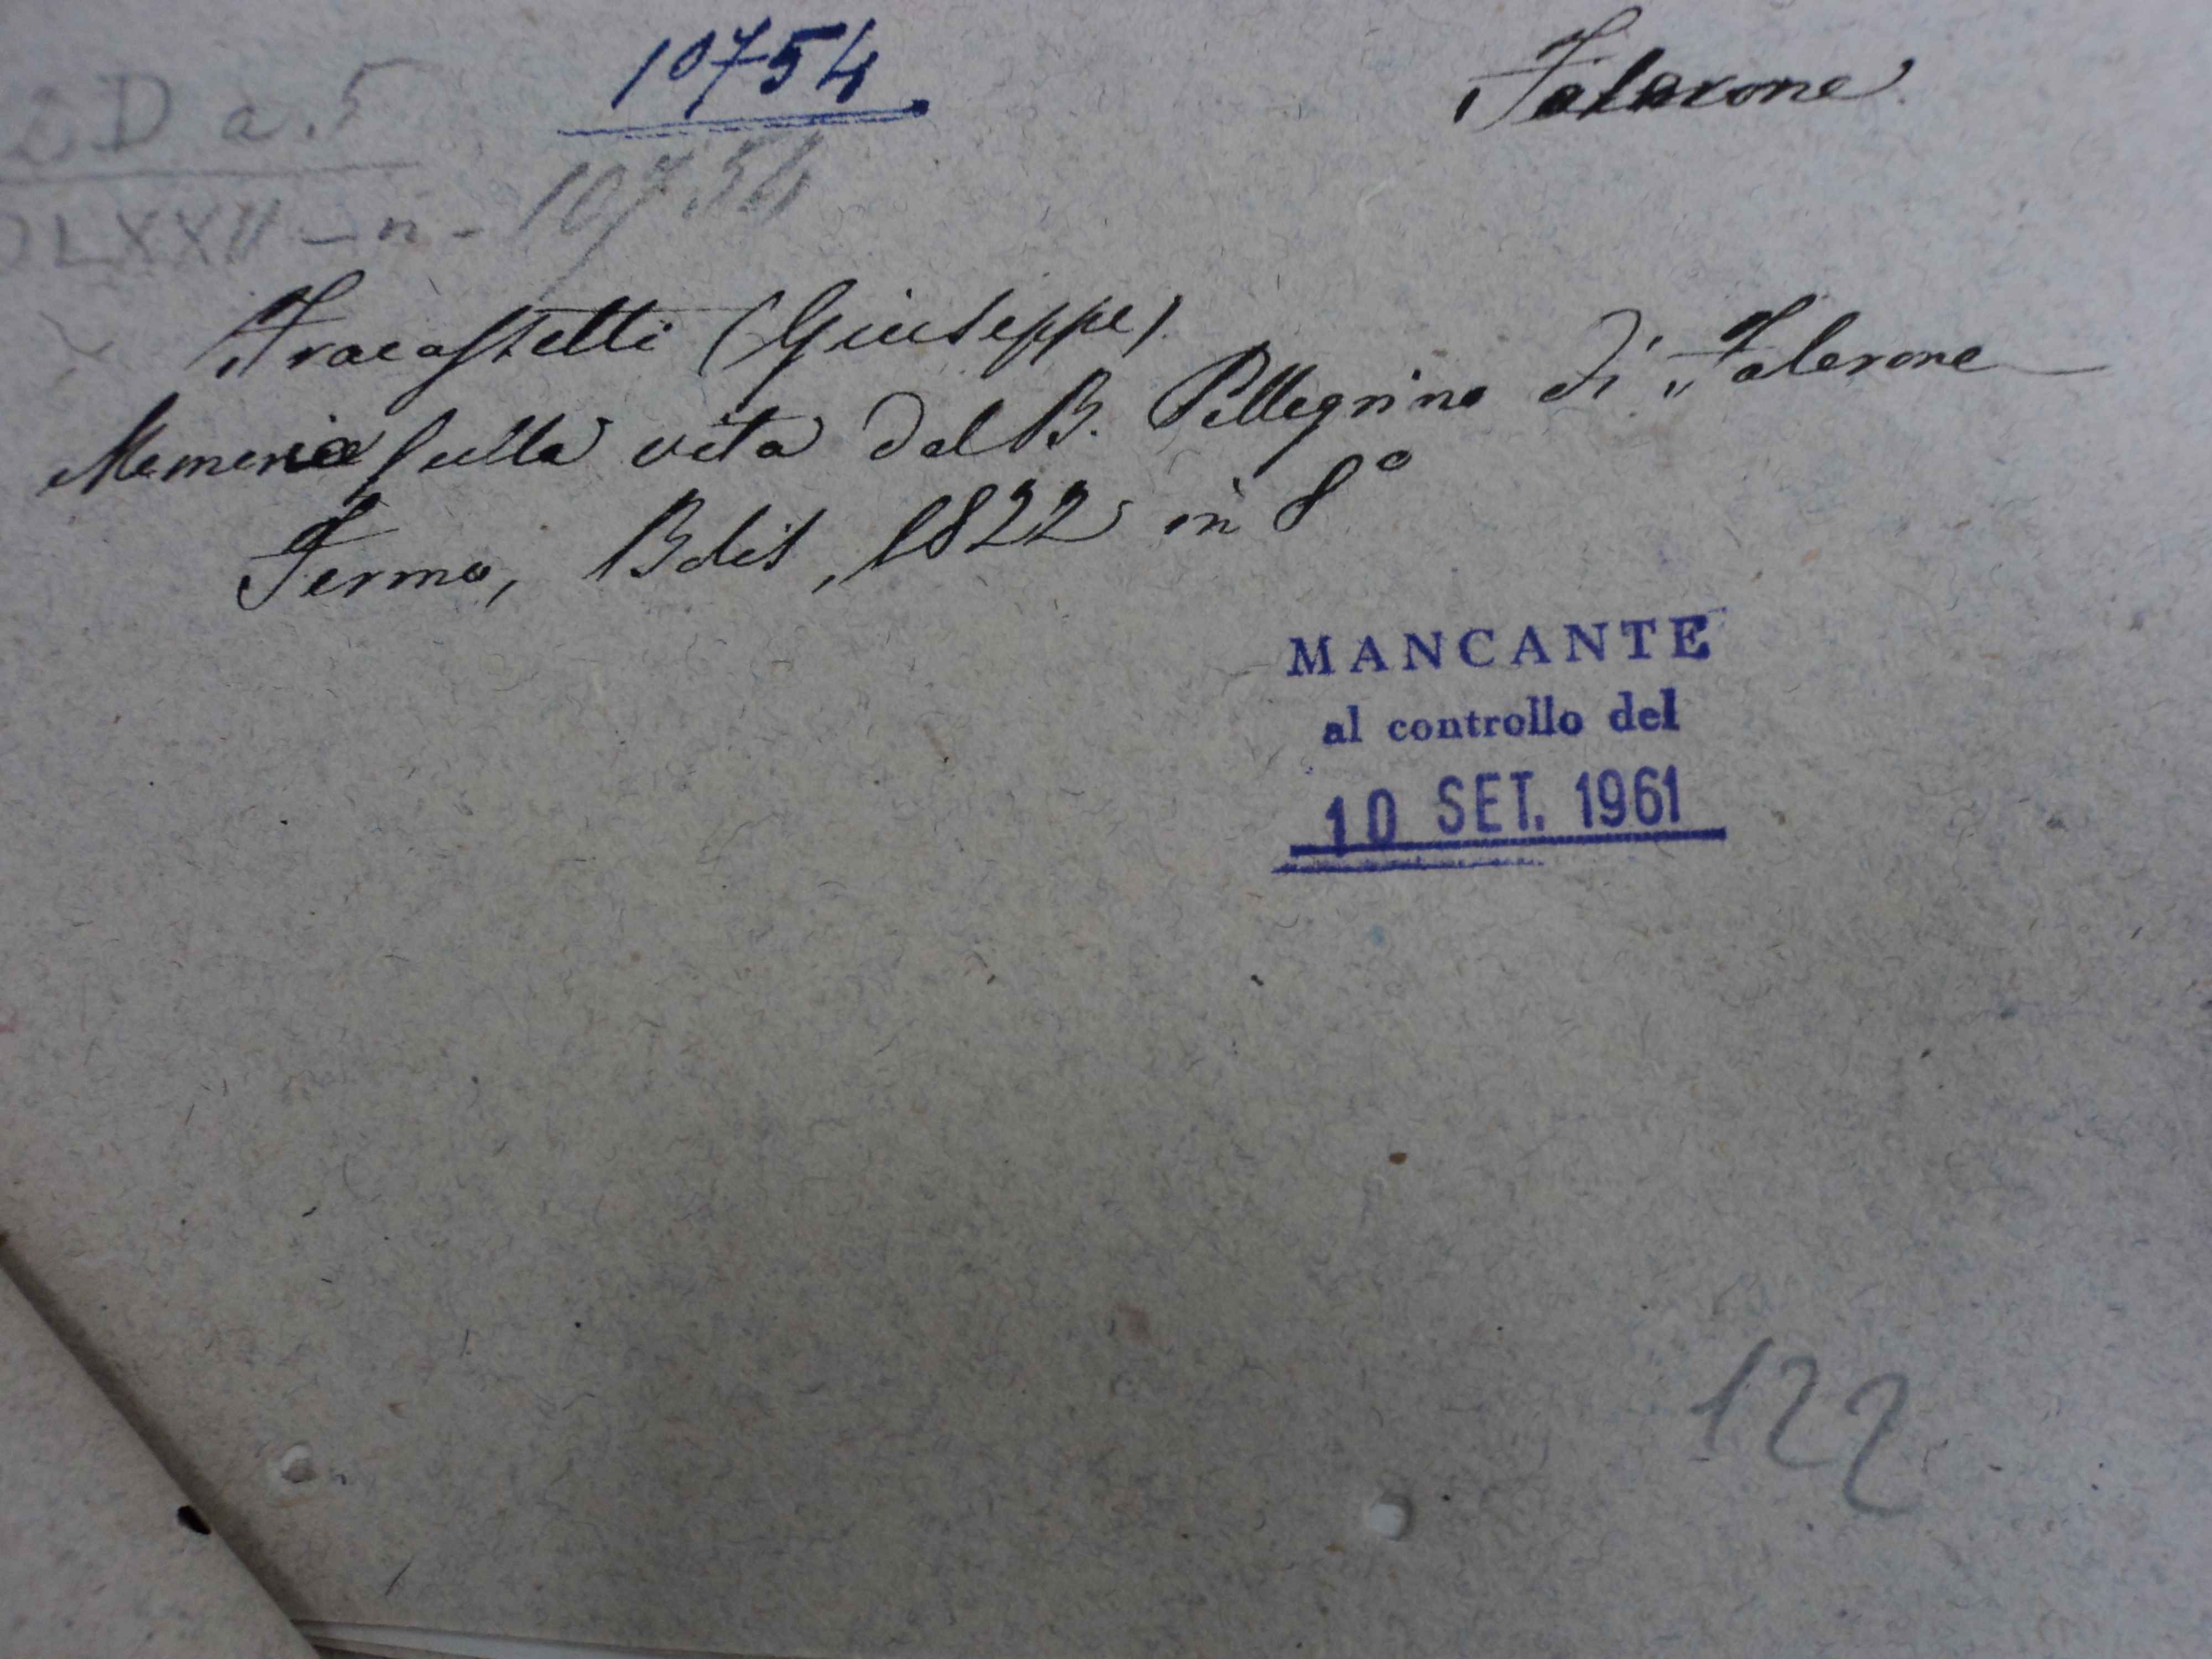 10754
Falerone
2 D a. 5
DLXXII - n - 10754
Fracassetti (Giuseppe)
Memoria sulla vita del B. Pellegrino di Falerone
Fermo, 1822 in 8°
MANCANTE
al controllo del
10 SET. 1961
122